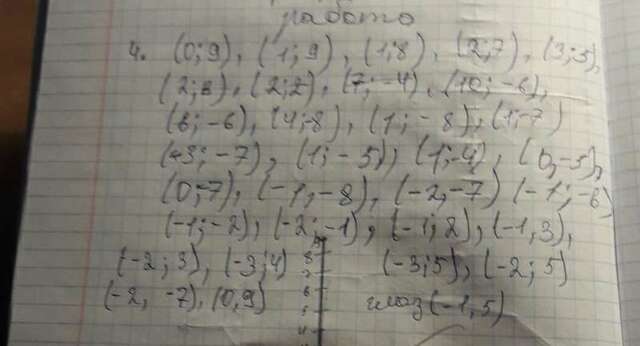 работа
4. (0;9), (1;9), (1;8), (2;7), (3;5),
(2;3), (2;2), (7;-4), (10;-6),
(6;-6), (4;-8), (1;-8), (1;-7)
(-3;-7), (1;-5), (1;-4), (0,-5),
(0;-7), (-1,-8), (-2,-7) (-1;-6)
(-1;-2), (-2;-1), (-1;2), (-1,3),
(-2;3), (-3;4) (-3;5), (-2;5)
(-2,-7), (0,9) глаз (-1,5)
8
7
6
5
4